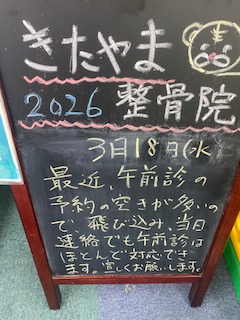 きたやま
2026 整骨院
3月18日(水
最近、午前診の
予約の空きが多いの
で、飛び込み、当日
連絡でも午前診は
ほとんど対応でき
ます。宜しくお願いします。